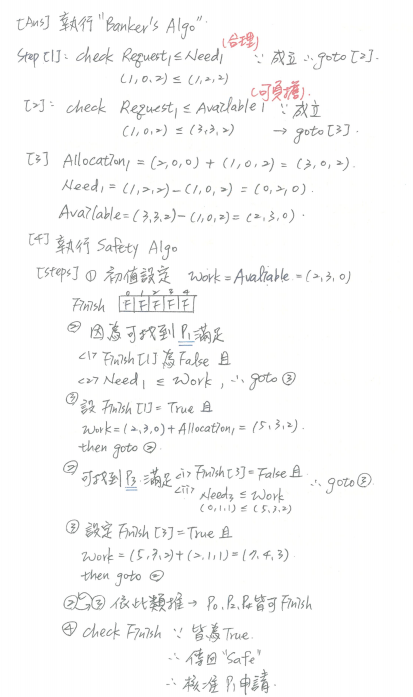 [Ans] 執行"Banker's Algo"
(合理)
Step[1]: check Request₁ ≤ Need₁ ∵ 成立 ∴ goto [2].
(1,0,2) ≤ (1,2,2)
(可負擔)
[2]: check Request₁ ≤ Available ∵ 成立
(1,0,2) ≤ (3,3,2) → goto [3].
[3] Allocation₁ = (2,0,0) + (1,0,2) = (3,0,2).
Need₁ = (1,2,2) - (1,0,2) = (0,2,0).
Available = (3,3,2) - (1,0,2) = (2,3,0).
[4] 執行 Safety Algo
[Steps] ① 初值設定 Work = Available = (2,3,0)
0 1 2 3 4
Finish F F F F F
② 因為可找到 P₁ 滿足
<1> Finish[1] 為 False 且
<2> Need₁ ≤ Work, ∴ goto ③
③ 設 Finish[1] = True 且
Work = (2,3,0) + Allocation₁ = (5,3,2).
then goto ②.
② 可找到 P₃ 滿足 <i> Finish[3] = False 且 ∴ goto ③.
<ii> Need₃ ≤ Work
(0,1,1) ≤ (5,3,2)
③ 設定 Finish[3] = True 且
Work = (5,3,2) + (2,1,1) = (7,4,3).
then goto ②
②③ 依此類推 → P₀, P₂, P₄ 皆可 Finish
④ check Finish ∵ 皆為 True.
∴ 傳回 "Safe"
∴ 核准 P₁ 申請.